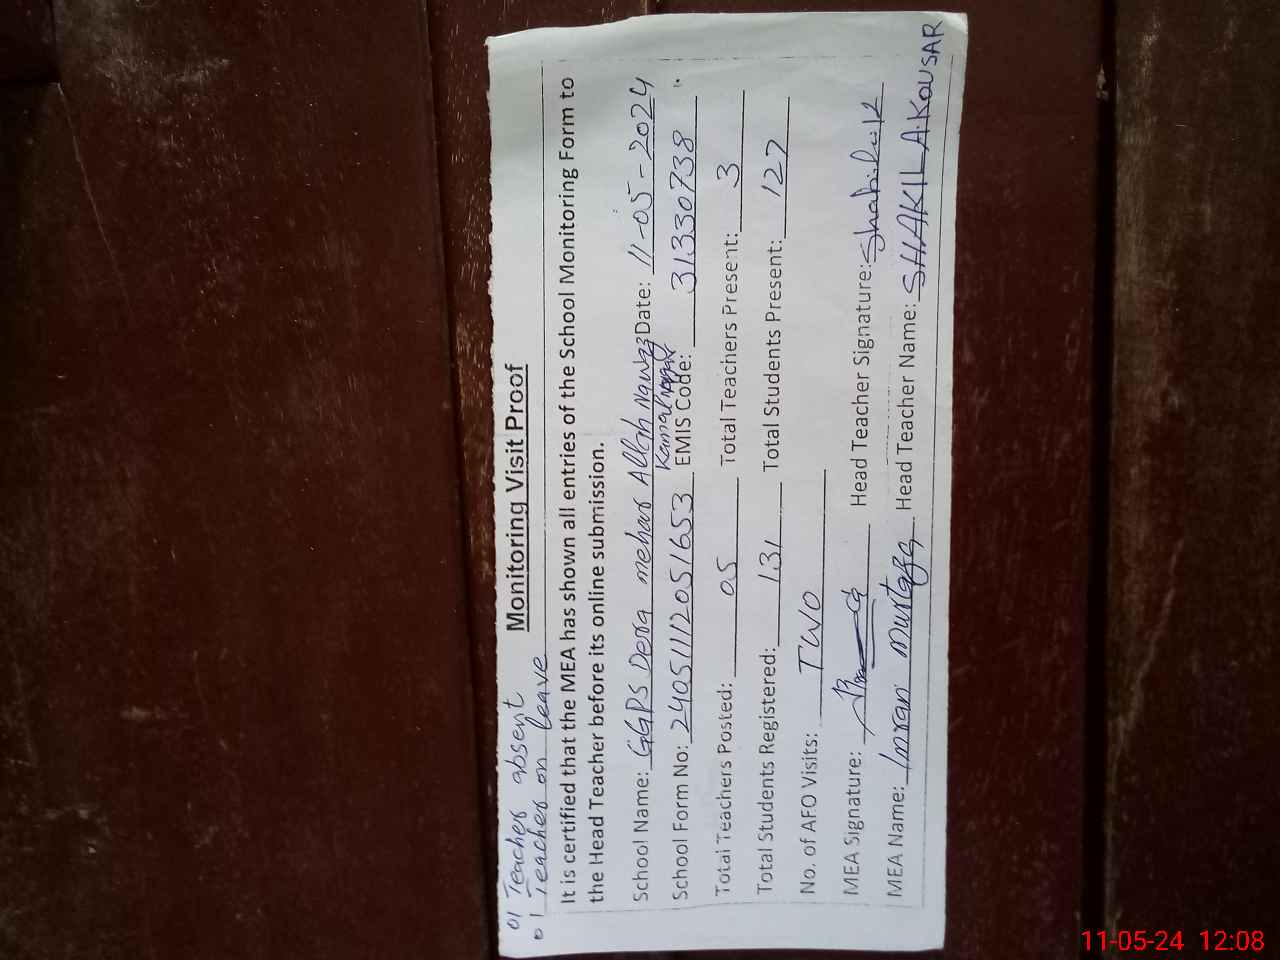 01 Teacher absent
01 Teacher on leave
Monitoring Visit Proof
It is certified that the MEA has shown all entries of the School Monitoring Form to
the Head Teacher before its online submission.
School Name: GGPS Dera mehar Allah Nawaz Date: 11-05-2024
Kamal
School Form No: 24051112051653 EMIS Code: 31330738
Total Teachers Posted: 05 Total Teachers Present: 3
Total Students Registered: 131 Total Students Present: 122
No. of AEO Visits: TWO
MEA Signature: Head Teacher Signature:
MEA Name: Imran Mustafa Head Teacher Name: SHAKILA KOUSAR
11-05-24 12:08